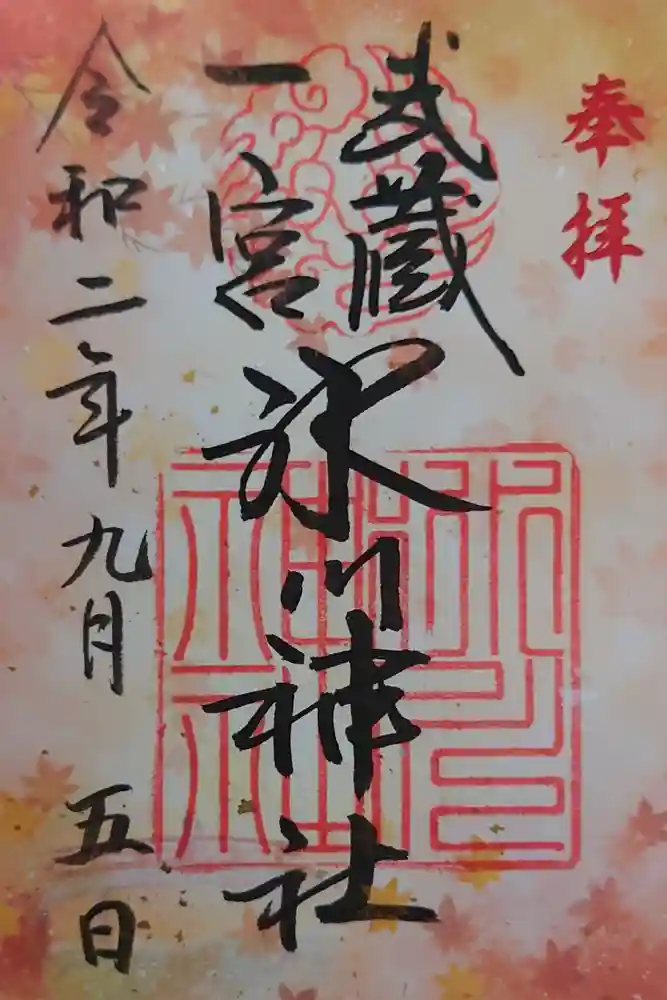 奉拝
武蔵
一宮
氷川神社
令和二年九月五日
氷川神社